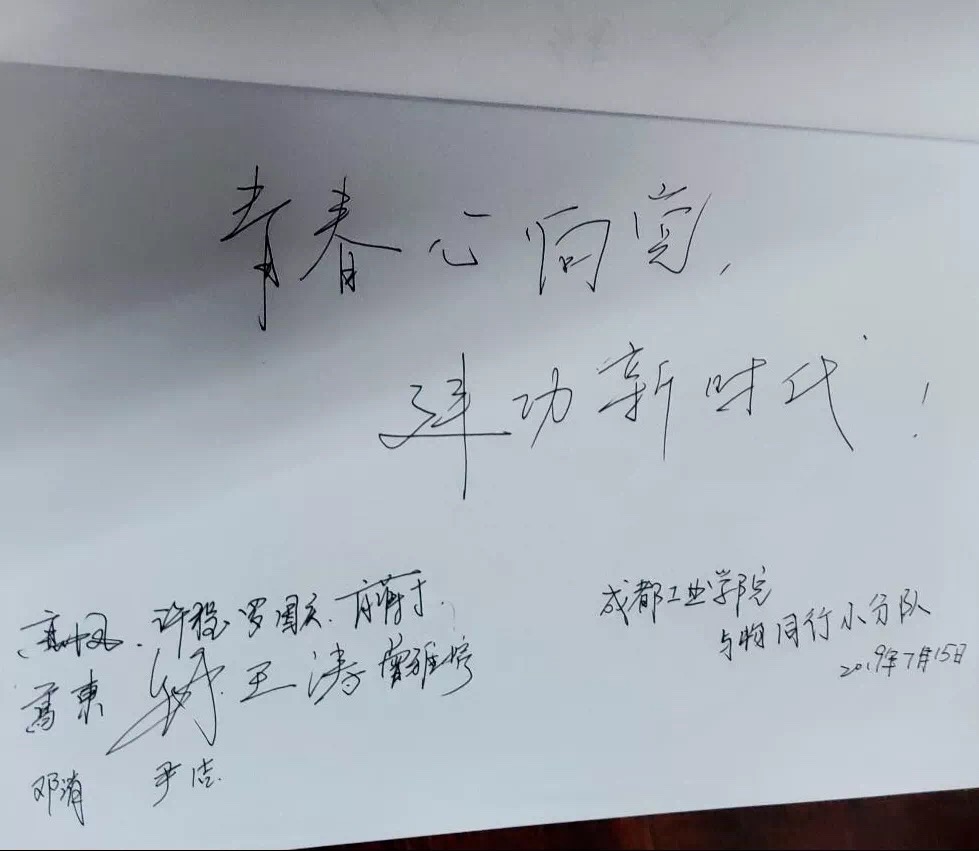 青春心向党，
建功新时代！
许稳 罗国文
高東 王涛 曾雅婷
邓消 尹洁
成都工业学院
与相同行小分队
2019年7月15日